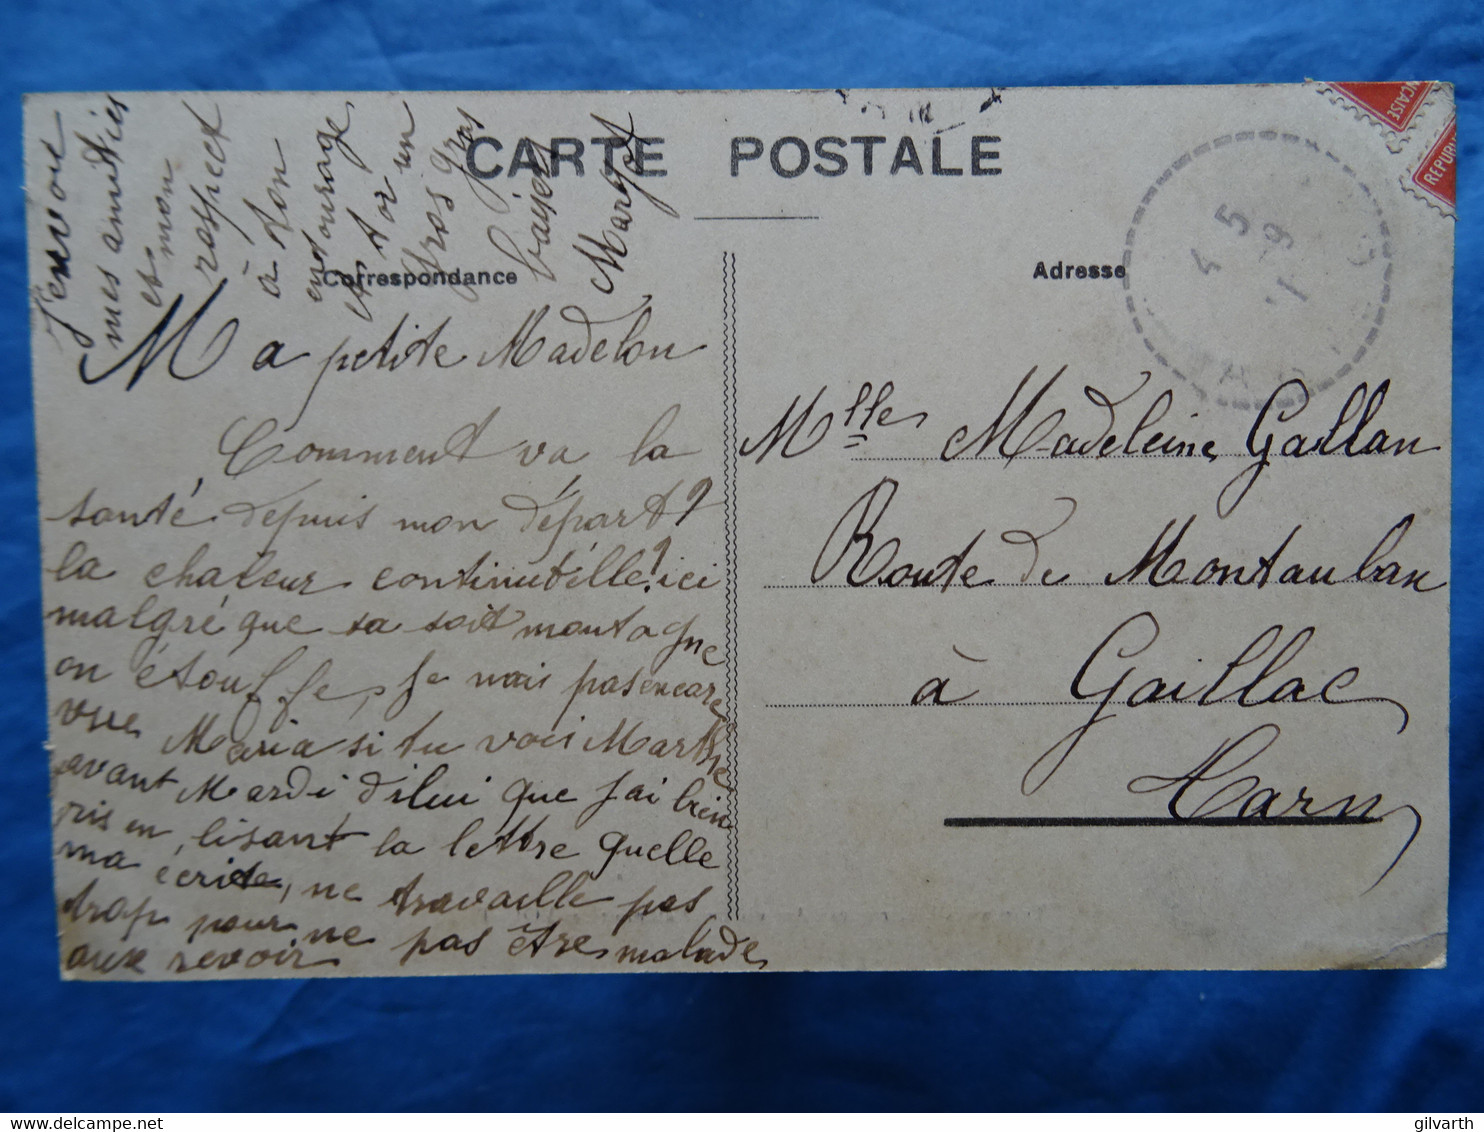 CARTE POSTALE
Correspondance
Adresse
J'envoie
mes amitiés
et mon
respect
à ton
entourage
et toi un
gros gras
baiser
Margot
Ma petite Madelon
Comment va la
santé depuis mon départ?
la chaleur continut'elle? ici
malgré que sa soit montagne
on étouffe, je nais pas encore
vue Maria si tu vois Marthe
avant Mardi dilui que j'ai bien
ris en lisant la lettre quelle
ma écrite, ne travaille pas
trop pour ne pas être malade
aux revoir
Mlle Madeleine Gallan
Route de Montauban
à Gaillac
Tarn
4 5
TARN
CAISE
REPUB
gilvarth